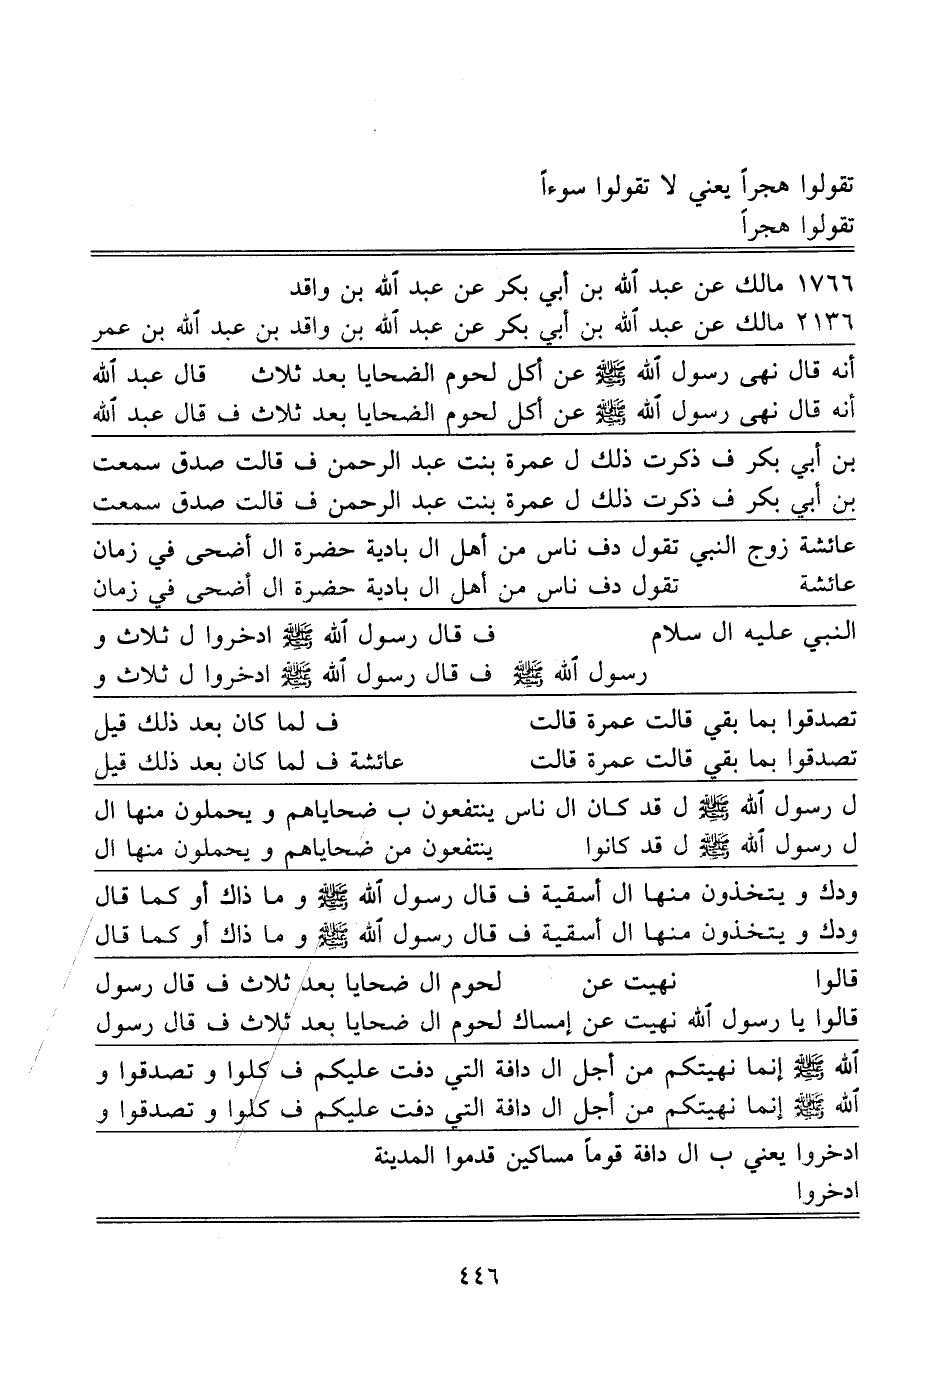 تقولوا هجراً يعني لا تقولوا سوءاً
تقولوا هجراً
١٧٦٦ مالك عن عبد الله بن أبي بكر عن عبد الله بن واقد
٢١٣٦ مالك عن عبد الله بن أبي بكر عن عبد الله بن واقد بن عبد الله بن عمر
أنه قال نهى رسول الله ﷺ عن أكل لحوم الضحايا بعد ثلاث قال عبد الله
أنه قال نهى رسول الله ﷺ عن أكل لحوم الضحايا بعد ثلاث ف قال عبد الله
بن أبي بكر ف ذكرت ذلك ل عمرة بنت عبد الرحمن ف قالت صدق سمعت
بن أبي بكر ف ذكرت ذلك ل عمرة بنت عبد الرحمن ف قالت صدق سمعت
عائشة زوج النبي تقول دف ناس من أهل ال بادية حضرة ال أضحى في زمان
عائشة تقول دف ناس من أهل ال بادية حضرة ال أضحى في زمان
النبي عليه ال سلام ف قال رسول الله ﷺ ادخروا ل ثلاث و
رسول الله ﷺ ف قال رسول الله ﷺ ادخروا ل ثلاث و
تصدقوا بما بقي قالت عمرة قالت ف لما كان بعد ذلك قيل
تصدقوا بما بقي قالت عمرة قالت عائشة ف لما كان بعد ذلك قيل
ل رسول الله ﷺ ل قد كان ال ناس ينتفعون ب ضحاياهم و يحملون منها ال
ل رسول الله ﷺ ل قد كانوا ينتفعون من ضحاياهم و يحملون منها ال
ودك و يتخذون منها ال أسقية ف قال رسول الله ﷺ و ما ذاك أو كما قال
ودك و يتخذون منها ال أسقية ف قال رسول الله ﷺ و ما ذاك أو كما قال
قالوا نهيت عن لحوم ال ضحايا بعد ثلاث ف قال رسول
قالوا يا رسول الله نهيت عن إمساك لحوم ال ضحايا بعد ثلاث ف قال رسول
الله ﷺ إنما نهيتكم من أجل ال دافة التي دفت عليكم ف كلوا و تصدقوا و
الله ﷺ إنما نهيتكم من أجل ال دافة التي دفت عليكم ف كلوا و تصدقوا و
ادخروا يعني ب ال دافة قوماً مساكين قدموا المدينة
ادخروا
٤٤٦